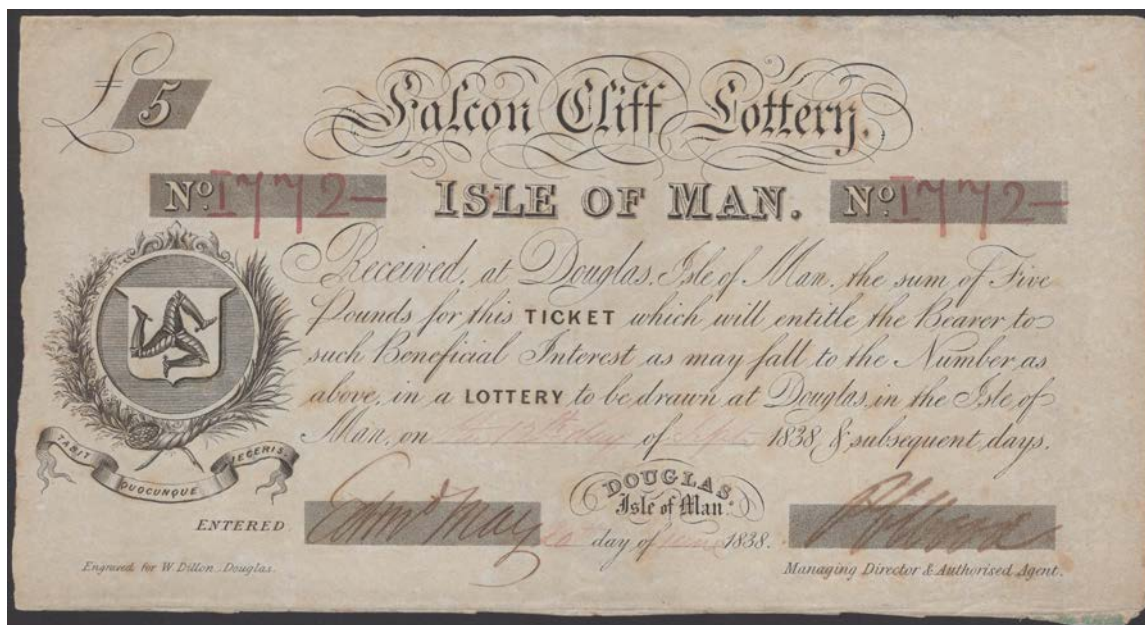 £5
Falcon Cliff Lottery.
No. 1772- ISLE OF MAN. No. 1772-
Received, at Douglas, Isle of Man, the sum of Five
Pounds for this TICKET which will entitle the Bearer to
such Beneficial Interest as may fall to the Number as
above, in a LOTTERY to be drawn at Douglas, in the Isle of
Man, on the 13th day of Septr 1838, & subsequent days.
TABIT QUOCUNQUE JECERIS.
DOUGLAS
Isle of Man.
ENTERED Edmd May day of June 1838.
Engraved for W. Dillon Douglas.
Managing Director & Authorised Agent.